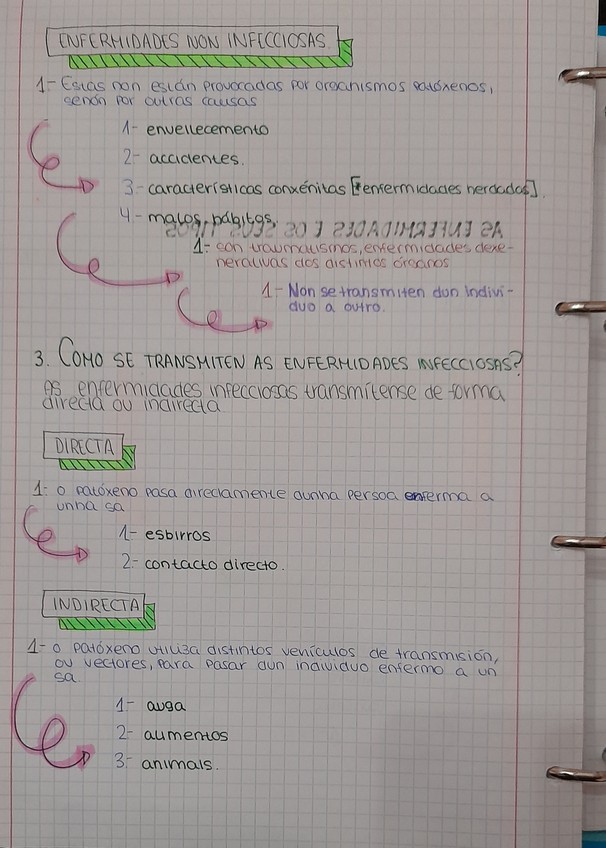 ENFERMIDADES NON INFECCIOSAS
1- Estas non están provocadas por organismos patóxenos,
senón por outras causas
1- envellecemento
2- accidentes.
3- características conxénitas [*enfermidades herdadas].
4- malos hábitos.
AS ENFERMIDADES E OS SEUS TIPOS
1- son traumatismos, enfermidades dexe-
nerativas dos distintos órganos
1- Non se transmiten dun indivi-
duo a outro.
3. COMO SE TRANSMITEN AS ENFERMIDADES INFECCIOSAS?
As enfermidades infecciosas transmítense de forma
directa ou indirecta
DIRECTA
1- o patóxeno pasa directamente dunha persoa enferma a
unha sa
1- esbirros
2- contacto directo.
INDIRECTA
1- o patóxeno utiliza distintos vehículos de transmisión,
ou vectores, para pasar dun individuo enfermo a un
sa.
1- auga
2- alimentos
3- animais.